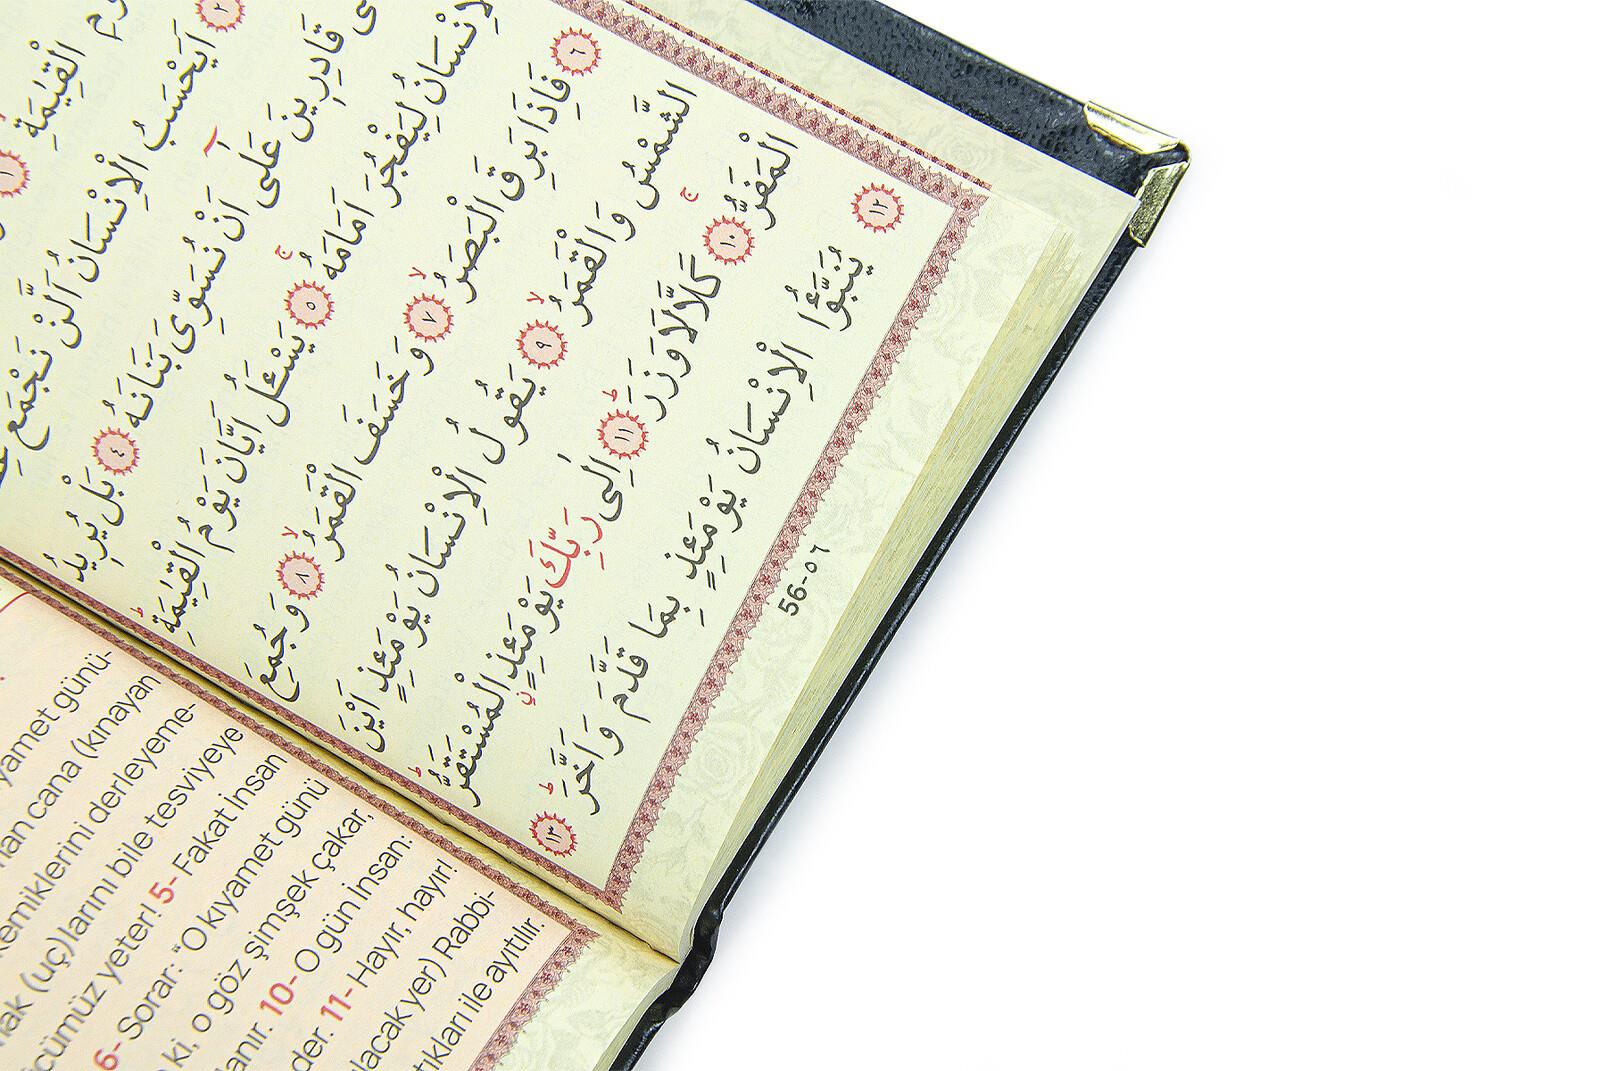 الْقِيٰمَةِ ١
٢ اَيَحْسَبُ الْاِنْسَانُ اَلَّنْ نَجْمَعَ
قَادِرِينَ عَلٰٓى اَنْ نُسَوِّىَ بَنَانَهُ ٤ بَلْ يُرِيدُ
الْاِنْسَانُ لِيَفْجُرَ اَمَامَهُۚ ٥ يَسْـَٔلُ اَيَّانَ يَوْمُ الْقِيٰمَةِۜ
٦ فَاِذَا بَرِقَ الْبَصَرُۙ ٧ وَخَسَفَ الْقَمَرُۙ ٨ وَجُمِعَ
الشَّمْسُ وَالْقَمَرُۙ ٩ يَقُولُ الْاِنْسَانُ يَوْمَئِذٍ اَيْنَ
الْمَفَرُّۚ ١٠ كَلَّا لَا وَزَرَۜ ١١ اِلٰى رَبِّكَ يَوْمَئِذٍۨ الْمُسْتَقَرُّۜ
١٢ يُنَبَّؤُا الْاِنْسَانُ يَوْمَئِذٍ بِمَا قَدَّمَ وَاَخَّرَۜ ١٣
56-٥٦
yamet günü-
cana (kınayan
kemiklerini derleyeme-
(uç)larını bile tesviyeye
cümüz yeter! 5- Fakat insan
6- Sorar: “O kıyamet günü
ki, o göz şimşek çakar,
lanır. 10- O gün İnsan:
der. 11- Hayır, hayır!
lacak yer) Rabbi-
tıkları ile ayıtılır.